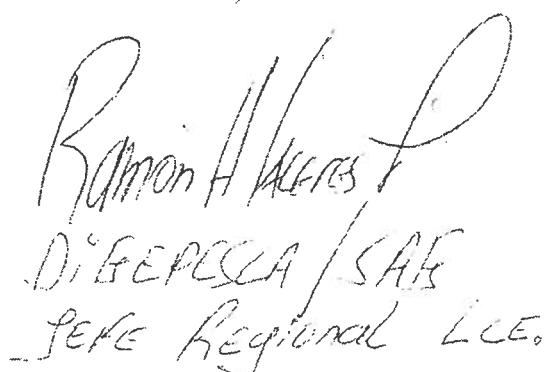 Ramon H Valeres P
DiGEPESCA / SAG
JEFE Regional LCE.